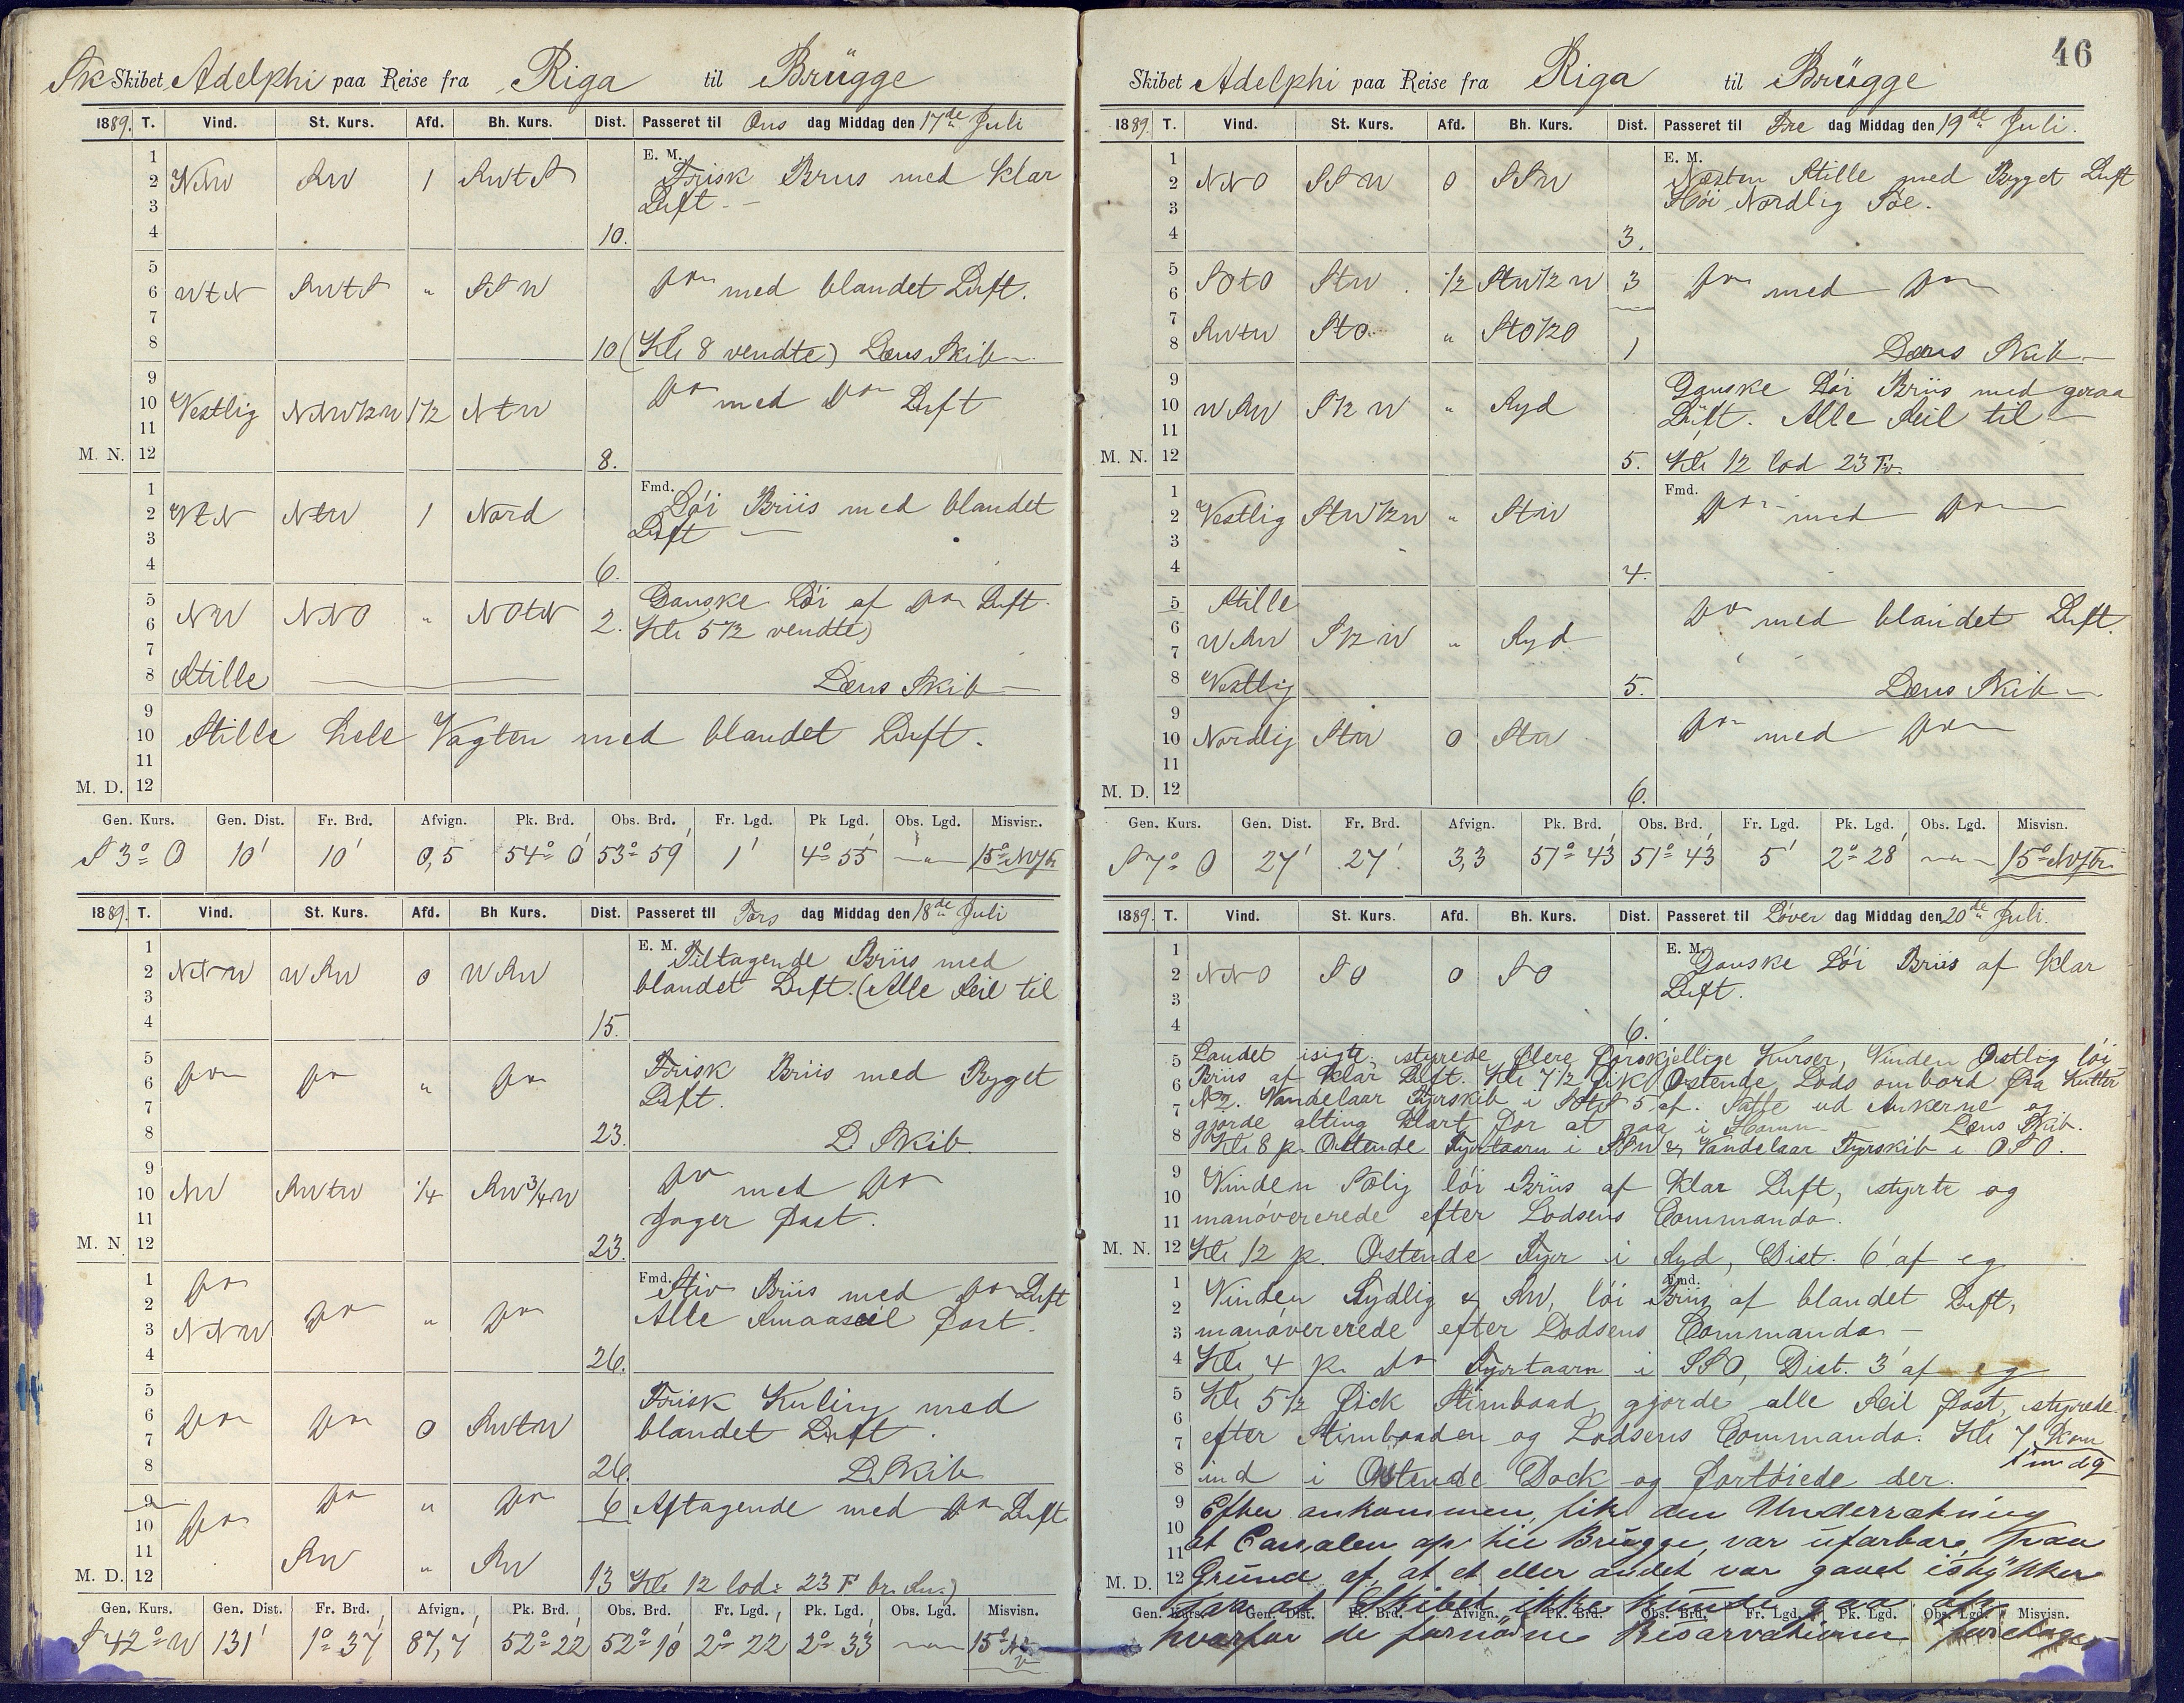 Sk Skibet Adelphi paa Reise fra Riga til Brügge
1889. T. Vind. St. Kurs. Afd. Bh. Kurs. Dist. Passeret til Ons dag Middag den 17de Juli
1 E. M. Frisk Briis med Klar
2 NNW SW 1 SWtS Luft.
3
4 10.
5
6 WtN SWtS " SSW do med blandet Luft.
7
8 10 (Kl: 8 vendte) Læns Skib
9
10 Vestlig NNW½W 1½ NtW do med do Luft
11
M. N. 12 8.
1 Fmd. Löi Briis med blandet
2 WtN NtW 1 Nord Luft
3
4 6.
5 Ganske Löi af do Luft
6 NW NNO " NOtN 2. Kl: 5½ vendte)
7
8 Stille Læns Skib
9
10 Stille hele Vagten med blandet Luft.
11
M. D. 12
Gen. Kurs. Gen. Dist. Fr. Brd. Afvign. Pk. Brd. Obs. Brd. Fr. Lgd. Pk Lgd. Obs. Lgd. Misvisn.
S 3° O 10' 10' 0,5 54° 0' 53° 59' 1' 4° 55' " 15° NV
1889. T. Vind. St. Kurs. Afd. Bh Kurs. Dist. Passeret til Tors dag Middag den 18de Juli
1 E. M. Tiltagende Briis med
2 NNW WSW 0 WSW blandet Luft. (Alle Seil til
3
4 15.
5
6 do do " do Frisk Briis med Bygget
7 Luft.
8 23. L Skib.
9
10 NW SWtW ¼ SW¾W do med do
11 Jager fast.
M. N. 12 23.
1 do Fmd. Stiv Briis med do Luft
2 do " do Alle Smaaseil fast.
3 NNW
4 26.
5 Frisk Kuling med
6 do do 0 SWtW blandet Luft.
7
8 26. L Skib
9 do " do 6 Aftagende med do Luft
10 do
11 SW " SW
M. D. 12 13 Kl: 12 lod: 23 F br. Sn.)
Gen. Kurs. Gen. Dist. Fr. Brd. Afvign. Pk. Brd. Obs. Brd. Fr. Lgd. Pk. Lgd. Obs. Lgd. Misvisn.
S 42° W 131' 1° 37' 87,7' 52° 22' 52° 10' 2° 22' 2° 33' " 15°
46
Skibet Adelphi paa Reise fra Riga til Brügge
1889. T. Vind. St. Kurs. Afd. Bh. Kurs. Dist. Passeret til Fre dag Middag den 19de Juli.
1 E. M. Næsten Stille med Bygget Luft
2 NNO SSW 0 SSW Höi Nordlig Söe.
3
4 3.
5
6 SOtO StW ½ StW½W 3 do med do
7
8 SWtW StO " StO½O 1 Læns Skib
9 Ganske Löi Briis med graa
10 WSW S½W " Syd Luft. Alle Seil til
11
M. N. 12 5. Kl: 12 lod 23 Fv.
1 Fmd. do med do
2 Vestlig StW½W " StW
3
4 4.
5 Stille do med blandet Luft.
6 WSW S½W " Syd
7
8 Vestlig 5. Læns Skib
9
10 Nordlig StW 0 StW do med do
11
M. D. 12 6.
Gen. Kurs. Gen. Dist. Fr. Brd. Afvign. Pk. Brd. Obs. Brd. Fr. Lgd. Pk. Lgd. Obs. Lgd. Misvisn.
S 7° O 27' 27' 3,3 51° 43' 51° 43' 5' 2° 28' " 15° NV
1889. T. Vind. St. Kurs. Afd. Bh. Kurs. Dist. Passeret til Löver dag Middag den 20de Juli.
1 E. M. Ganske Löi Briis af Klar
2 NNO SO 0 SO Luft.
3
4 6.
5 Landet isigte, styrede flere forskjellige Kurser, Vinden Ostlig löi
6 Briis af klar Luft. Kl: 7½ fik Ostende Lods ombord fra Kutter
7 N 2. Vandelaar Fyrskib i StS 5' af. Satte ud Ankerne og
gjorde alting klart for at gaa i Havn Læns Skib.
8 Kl: 8 p. Ostende Fyrtaarn i SSW & Vandelaar Fyrskib i OSO.
9 Vinden Solig löi Briis af Klar Luft, styrte og
10
11 manöverede efter Lodsens Commando.
M. N. 12 Kl: 12 p. Ostende Fyr i Syd, Dist. 6' af eg
1 Fmd.
2 Vinden Sydlig & SW, löi Briis af blandet Luft,
3 manövererede efter Lodsens Commando
4 Kl: 4 p. do Fyrtaarn i SSO, Dist. 3' af eg
5 Kl: 5½ fick Stimbaad, gjorde alle Seil fast, styrede
6
7 efter Stimbaaden og Lodsens Commando. Kl: 7 kom
8 ind i Ostende Dock og fortöiede der.
9 Efter ankommen, fik den Underrætning
10
11 at Canalen op til Brügge, var ufarbare, paa
M. D. 12 Grund af at et eller andet var gaaet istykker
saa at Skibet ikke kunde gaa op,
Gen. Kurs. Gen. Dist. Fr. Brd. Afvign. Pk. Brd. Obs. Brd. Fr. Lgd. Pk. Lgd. Obs. Lgd. Misvisn.
hvorfor de fornödne Reservationer foretages